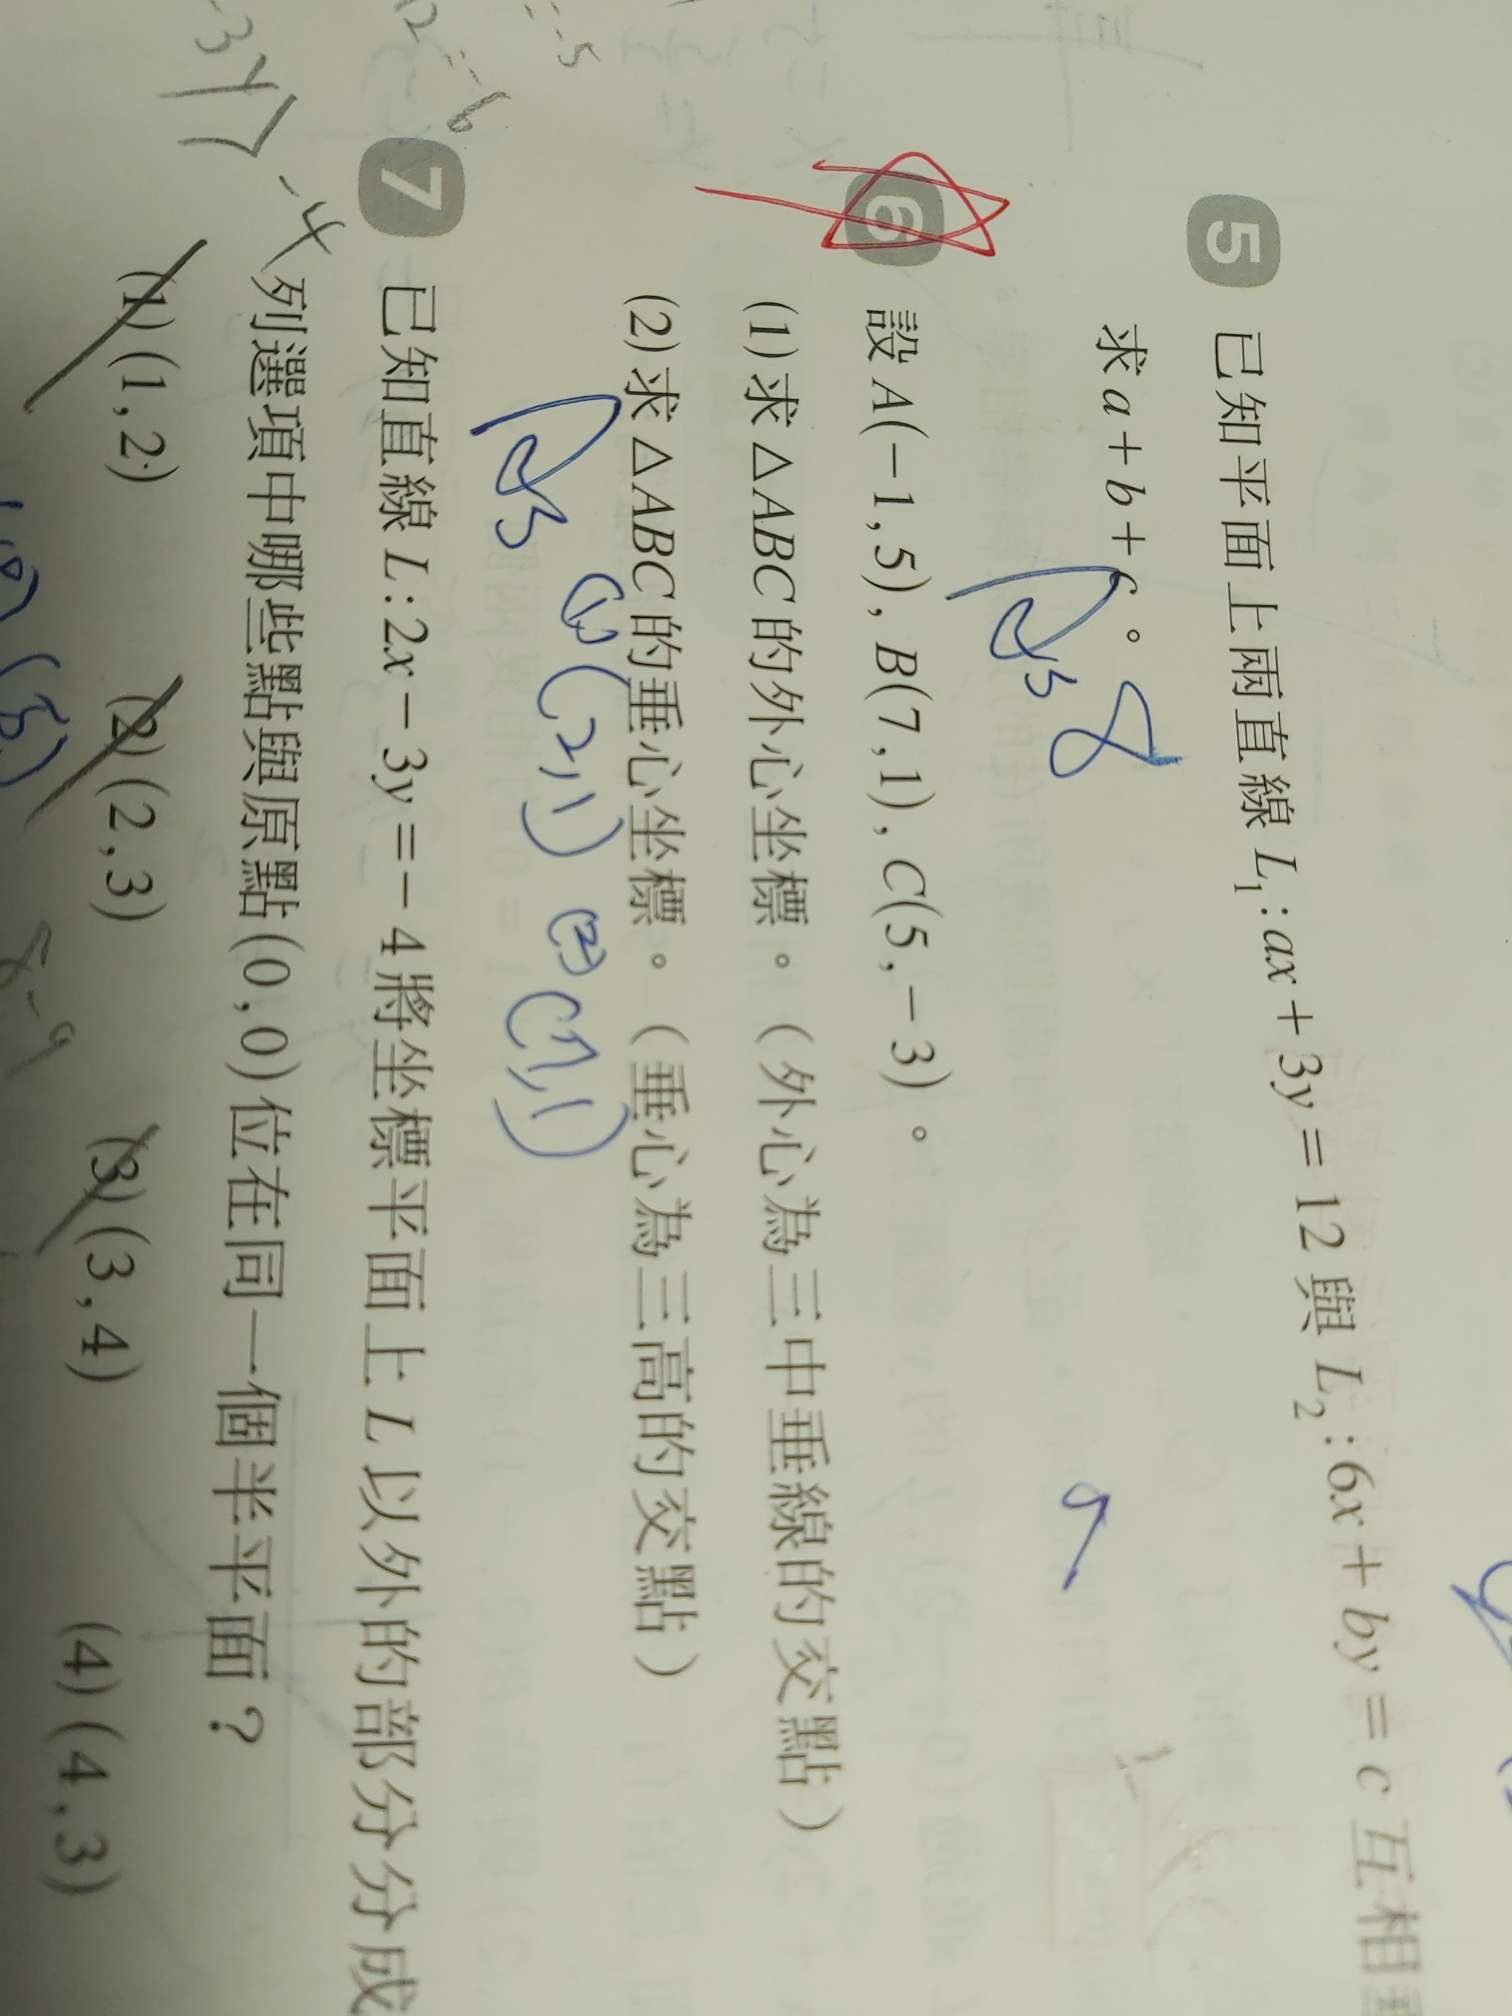 5 已知平面上兩直線 L₁:ax+3y=12 與 L₂:6x+by=c 互相
求 a+b+c。
Ans 8
6 設 A(-1,5), B(7,1), C(5,-3)。
(1)求△ABC的外心坐標。(外心為三中垂線的交點)
(2)求△ABC的垂心坐標。(垂心為三高的交點)
Ans (1)(2,1) (2)(7,1)
7 已知直線 L:2x-3y=-4 將坐標平面上 L 以外的部分分成
列選項中哪些點與原點(0,0)位在同一個半平面?
(1)(1,2) (2)(2,3) (3)(3,4) (4)(4,3)
-4
8-9